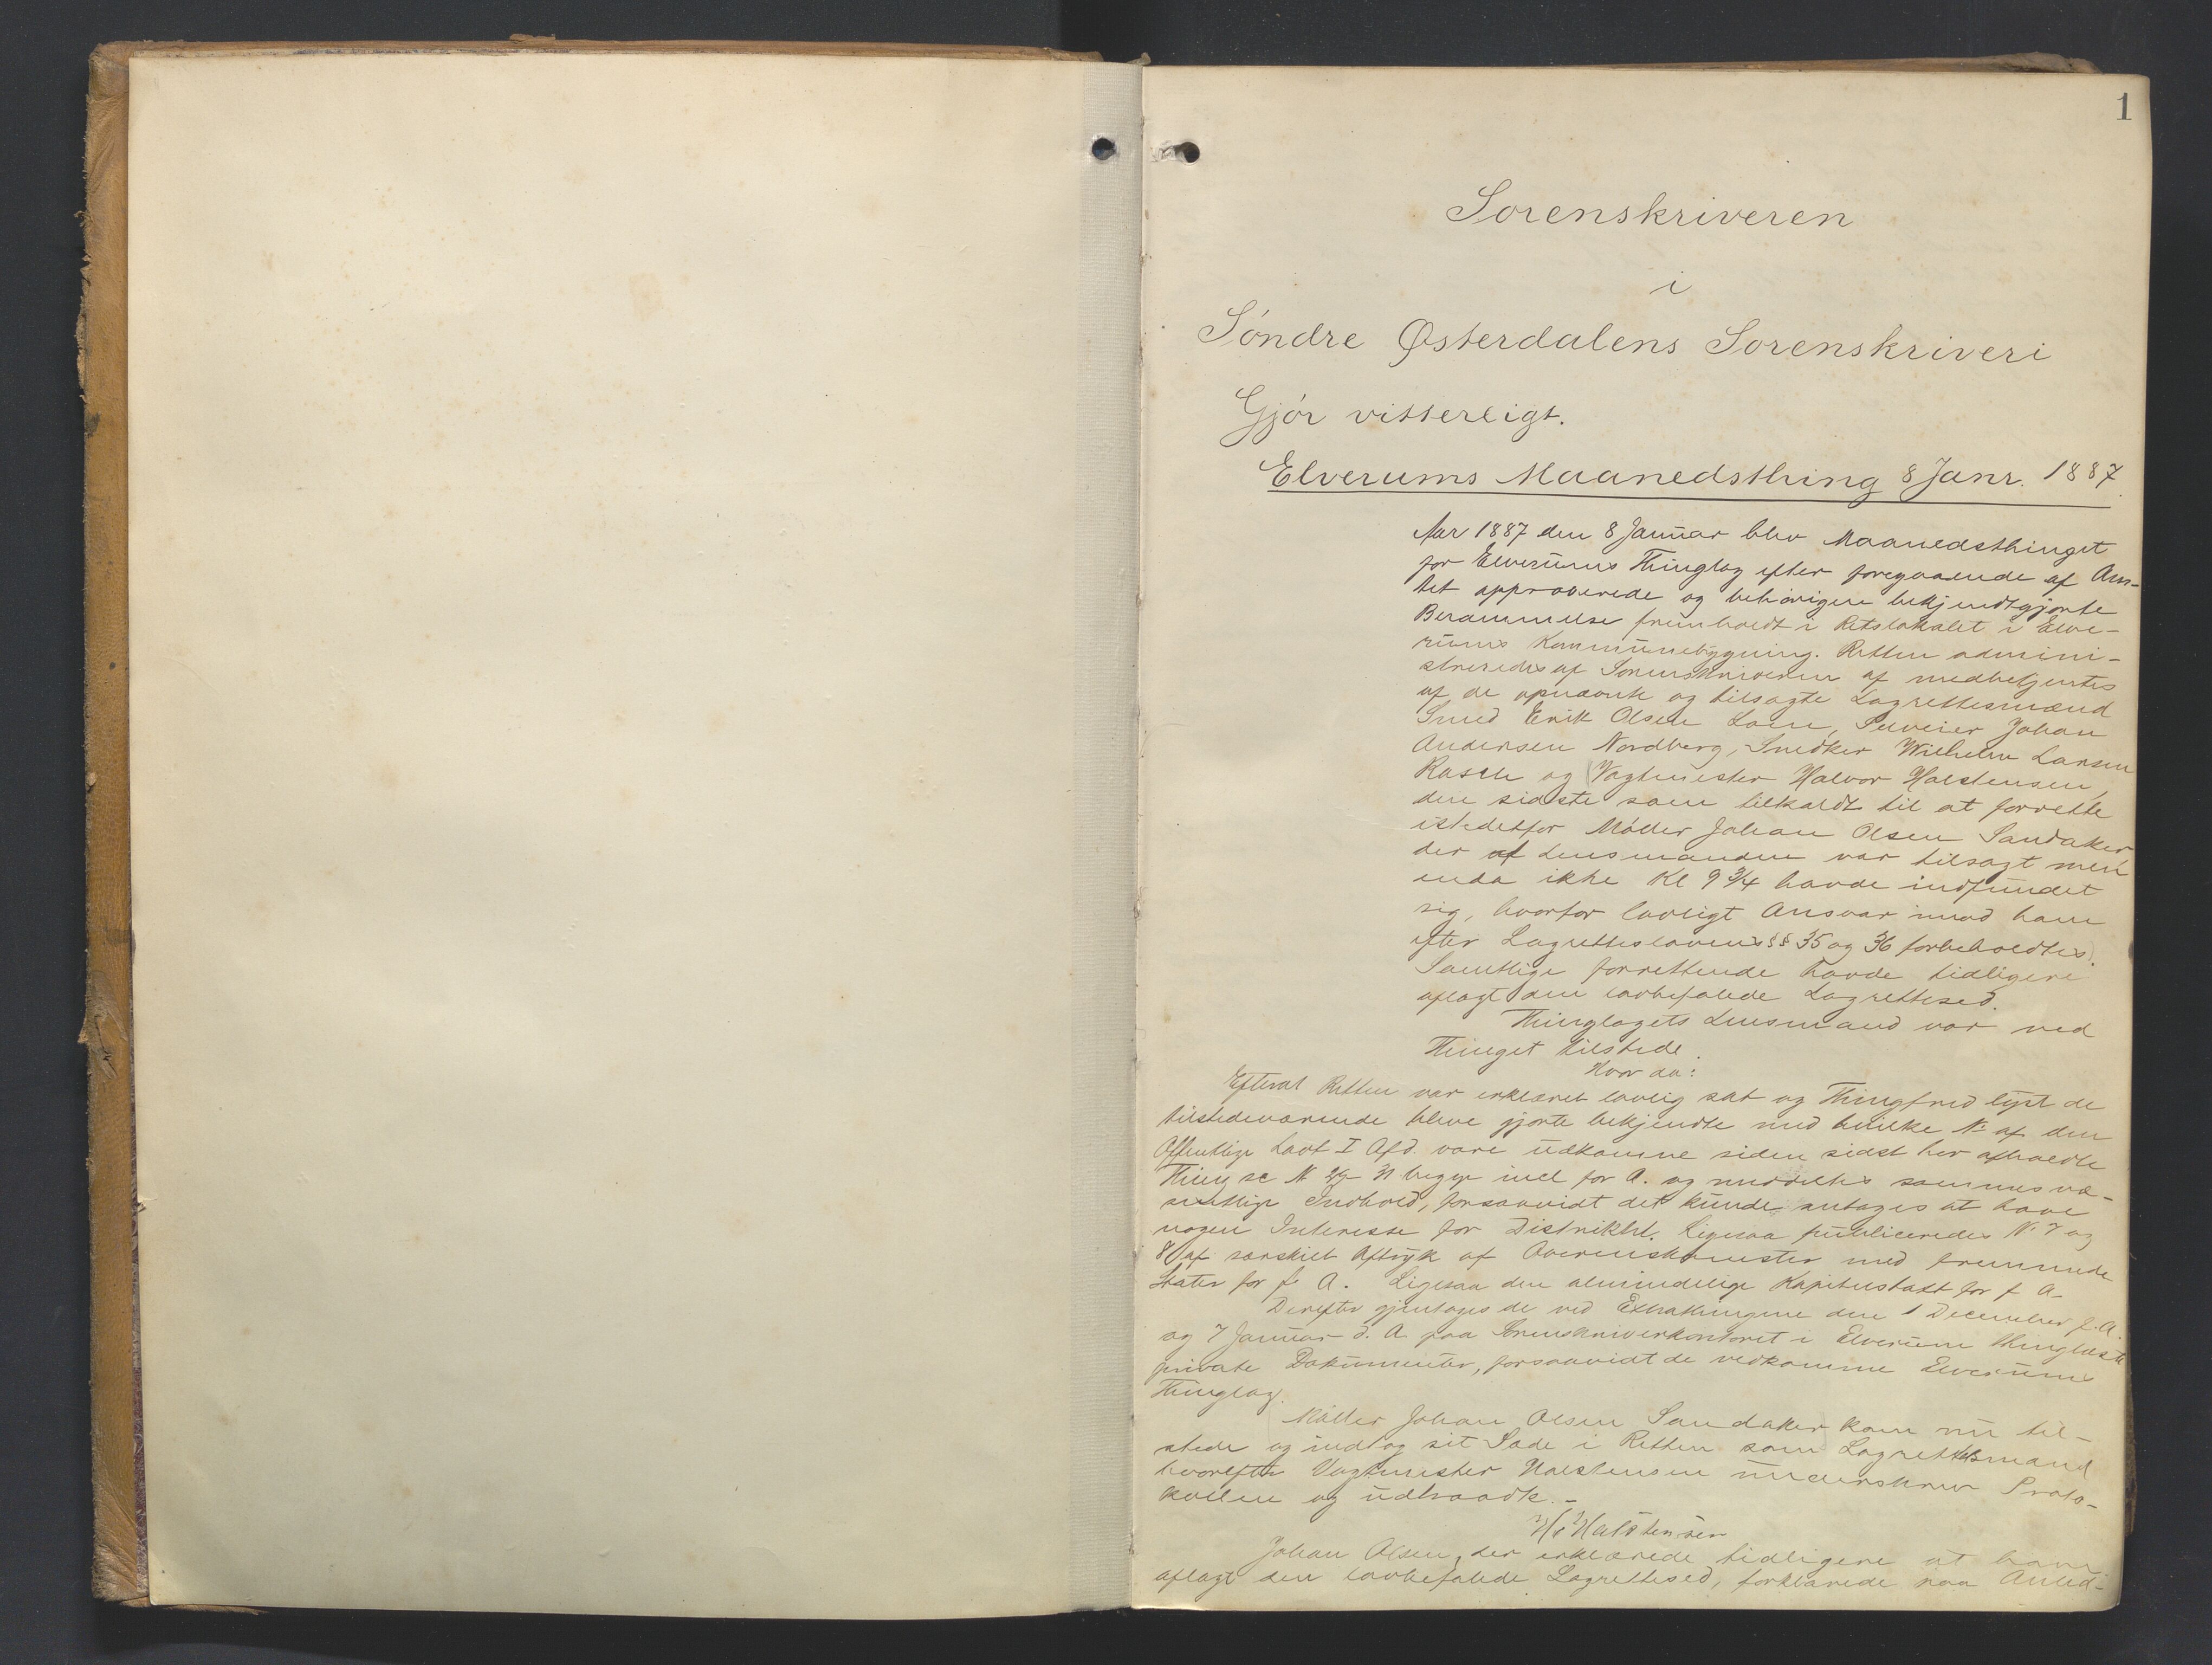 1
Sorenskriveren
i
Söndre Østerdalens Sorenskriveri
Gjör vitterligt.
Elverums Maanedsthing 8 Janr. 1887.
Aar 1887 den 8 Januar blev Maanedsthinget
for Elverums Thinglag efter foregaaende af Am-
tet approberede og behörigen bekjendtgjorte
Berammelse fremholdt i Retslokalet i Elve-
rums Kommunebygning. Retten admini-
streredes af Sorenskriveren af medbetjentes
af de opnævnte og tilsagte Lagrettesmænd
Smed Erik Olsen Lorn, Selveier Johan
Andersen Nordberg, Snedker Wilhelm Larsen
Rasch og Vagtmester Halvor Halstensen,
den sidste som tilkaldt til at forrette
istedetfor Möller Johan Olsen Sandaker
der af Lensmanden var tilsagt men
enda ikke Kl 9 3/4 havde indfundet
sig, hvorfor lovligt Ansvar imod ham
efter Lagretteslovens §§ 35 og 36 forbeholdtes.
Samtlige forrettende havde tidligere
aflagt den lovbefalede Lagrettesed.
Thinglagets Lensmand var ved
Thinget tilstede.
Hvor da:
Efterat Retten var erklæret lovlig sat og Thingfred lyst de
tilstedeværende bleve gjorte bekjendte med hvilke No af den
Offentlige Lovt I Afd. vare udkomne siden sidst her afholdte
Thing sc N begge incl for A. og meddeltes sammes væ-
sentlige Indhold, forsaavidt det kunde antages at have
nogen Interesse for Distriktet. Ligesaa publiceredes No 7 og
8 af særskilt Aftryk af Overenskomster med fremmede
Stater for f. A. Ligesaa den almindelige Kapitelstakst for f A.
Derefter gjentoges de ved Extrathingene den 1 December f. A.
og 7 Januar d. A. paa Sorenskriverkontoret i Elverum thinglæste
private Dokumenter, forsaavidt de vedkomme Elverums
Thinglag.
Möller Johan Olsen Sandaker kom nu til-
stede og indtog sit Sæde i Retten som Lagrettesmand
hvorefter Vagtmester Halstensen underskrev Proto-
kollen og udtraadte. -
H. Halstensen
Johan Olsen, der erklærede tidligere at have
aflagt den lovbefalede Lagrettesed, forklarede paa Anled-